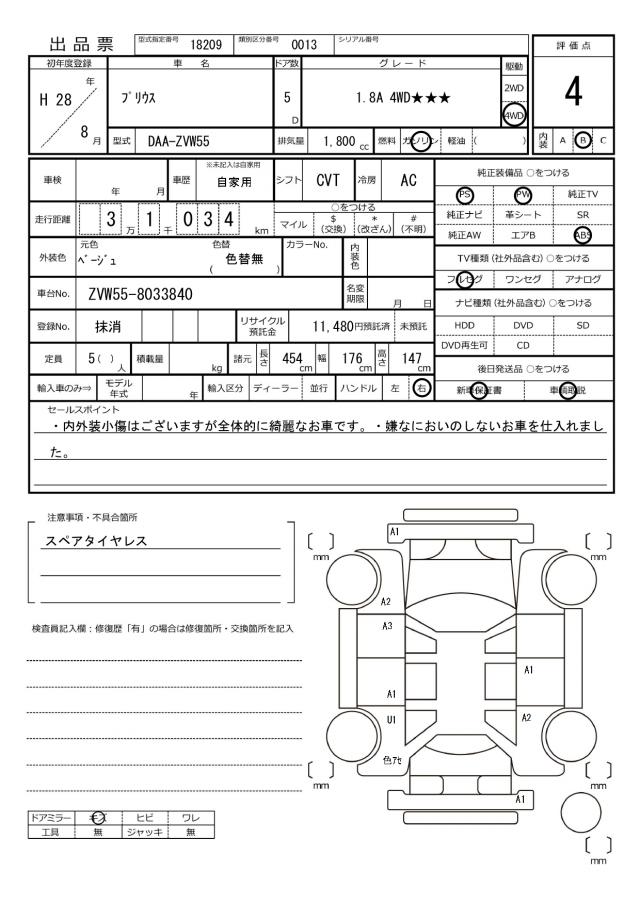 出品票 型式指定番号 18209 類別区分番号 0013 シリアル番号
評価点
4
初年度登録 車名 ドア数 グレード 駆動
H 28 年 8 月 プリウス 5 D 1.8A 4WD★★★ 2WD 4WD
型式 DAA-ZVW55 排気量 1,800 cc 燃料 ガソリン 軽油 ( ) 内装 A B C
車検 年 月 車歴 ※未記入は自家用 自家用 シフト CVT 冷房 AC
純正装備品 ○をつける
PS PW 純正TV
純正ナビ 革シート SR
純正AW エアB ABS
走行距離 3 万 1 千 0 3 4 km ○をつける
マイル $(交換) *(改ざん) #(不明)
外装色 元色 ベージュ 色替 ( 色替無 ) カラーNo. 内装色
TV種類 (社外品含む) ○をつける
フルセグ ワンセグ アナログ
車台No. ZVW55-8033840 名変期限 月 日
ナビ種類 (社外品含む) ○をつける
HDD DVD SD
DVD再生可 CD
登録No. 抹消 リサイクル預託金 11,480円預託済 未預託
定員 5( ) 人 積載量 kg 諸元 長さ 454 cm 幅 176 cm 高さ 147 cm
後日発送品 ○をつける
新車保証書 車輌取説
輸入車のみ⇒ モデル年式 年 輸入区分 ディーラー 並行 ハンドル 左 右
セールスポイント
・内外装小傷はございますが全体的に綺麗なお車です。・嫌なにおいのしないお車を仕入れまし
た。
注意事項・不具合箇所
スペアタイヤレス
検査員記入欄：修復歴「有」の場合は修復箇所・交換箇所を記入
A1
mm mm
A2
A3
A1
A1
U1 A2
色アセ
mm mm
A1
mm
ドアミラー キズ ヒビ ワレ
工具 無 ジャッキ 無